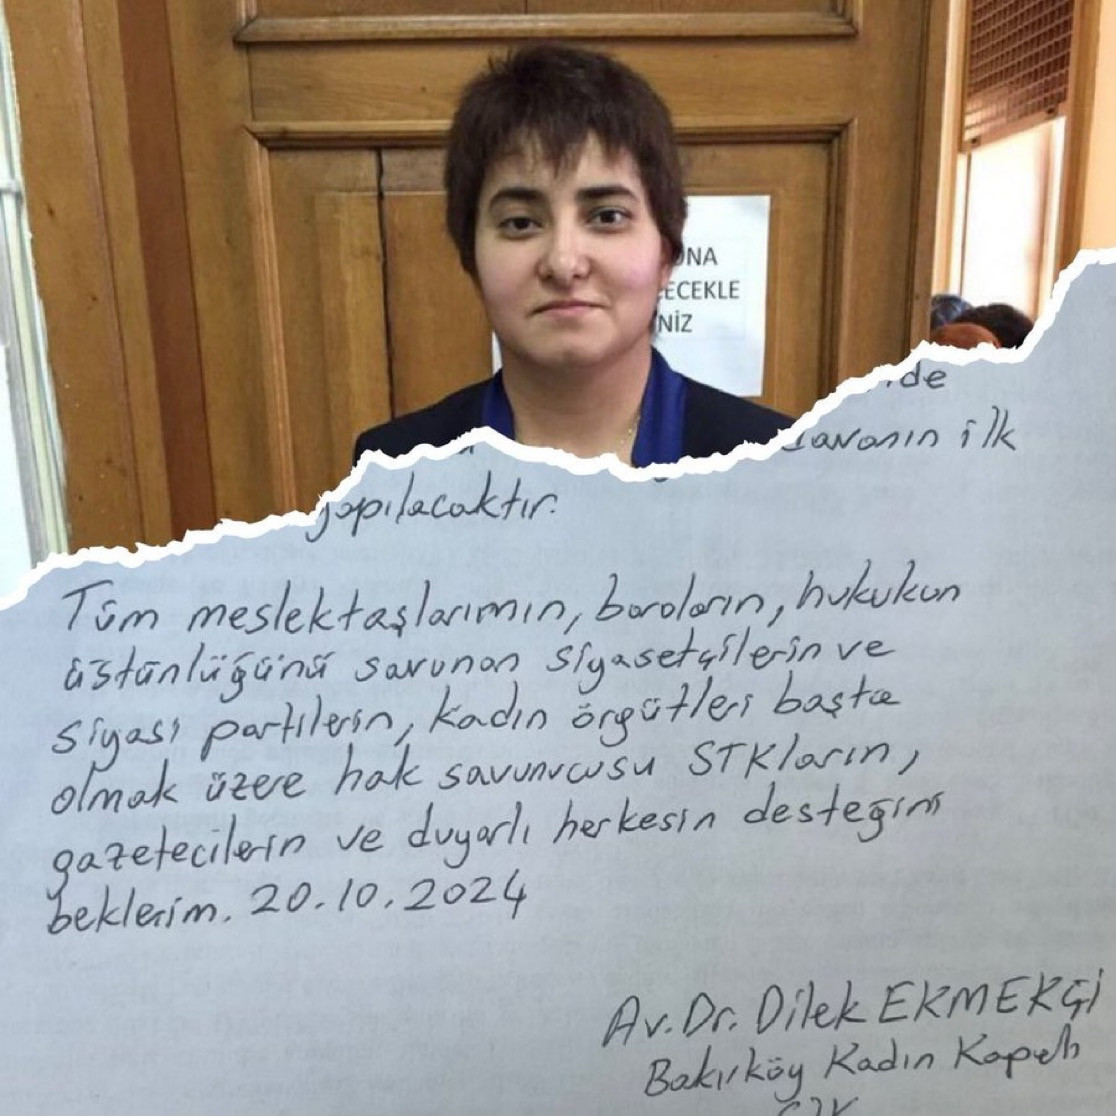 ONA
ECEKLE
NİZ
ilk
yapılacaktır.
Tüm meslektaşlarımın, baroların, hukukun
üstünlüğünü savunan siyasetçilerin ve
siyasi partilerin, kadın örgütleri başta
olmak üzere hak savunucusu STKların,
gazetecilerin ve duyarlı herkesin desteğini
beklerim. 20.10.2024
Av. Dr. Dilek EKMEKÇİ
Bakırköy Kadın Kapalı